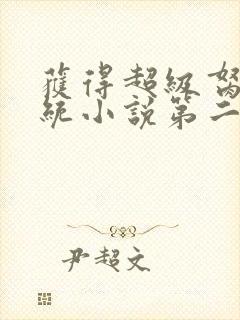 獲得超級
統小說第二
尹超文